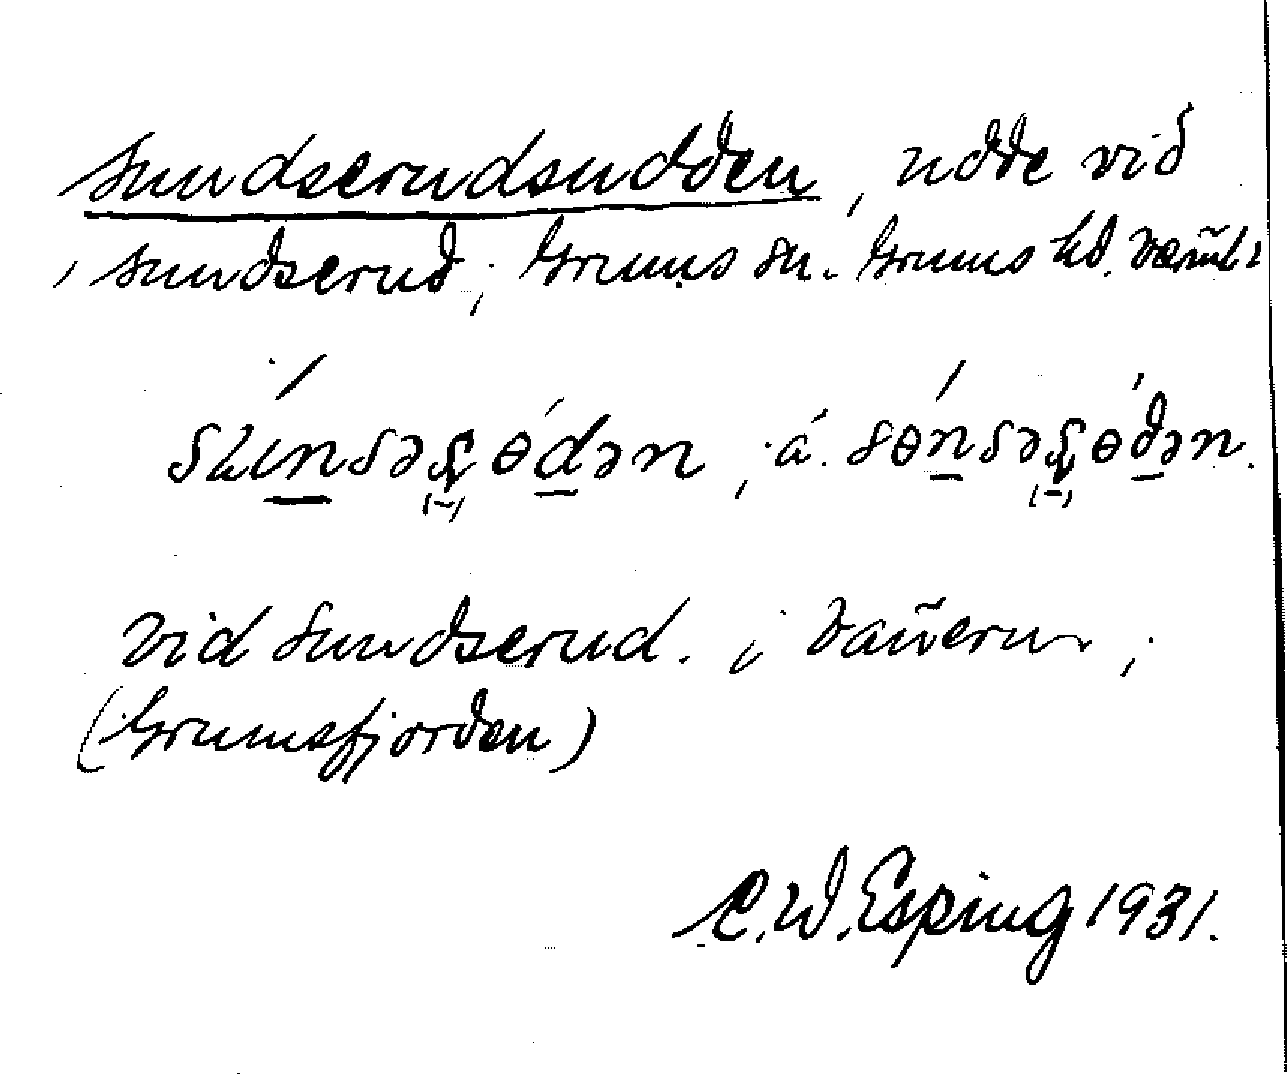 Sundserudsudden, udde vid
Sundserud, Grums sn. Grums hd. Värml.
sönsərödən, á. sɵnsərɵdən.
vid Sundserud. i Vänern,
(Grumsfjorden)
C. W. Esping 1931.